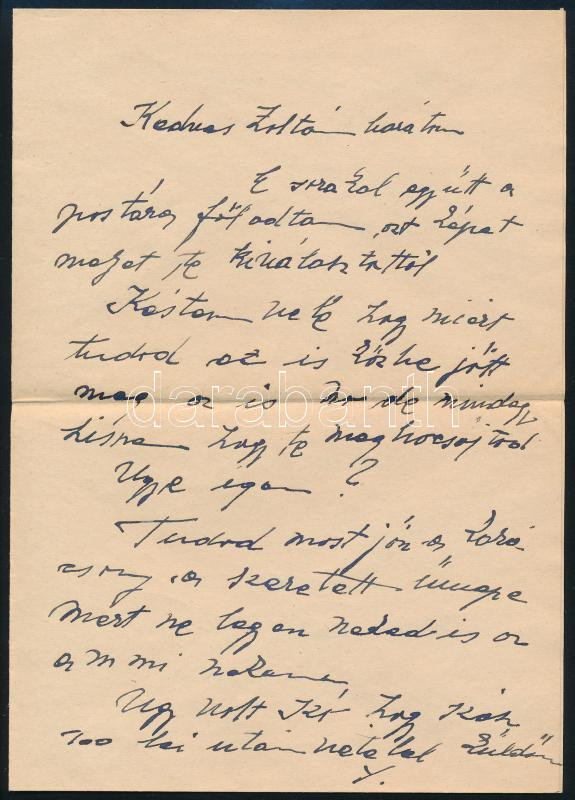 Kedves Zoltán barátom
E sorakal együtt a
postára föl adtam, azt képet
mejet te kiválasztottál
Késtem vele hogy miért
tudod az is közbe jött
meg az is de mindegy
hiszem hogy te megbocsájtod
Ugye igen?
Tudod most jön a kará
csony a szeretett ünepe
mert ne legyen neked is az
a mi nekem
Ugy volt hogy
100 lei után vétellel küldöm
darabanth